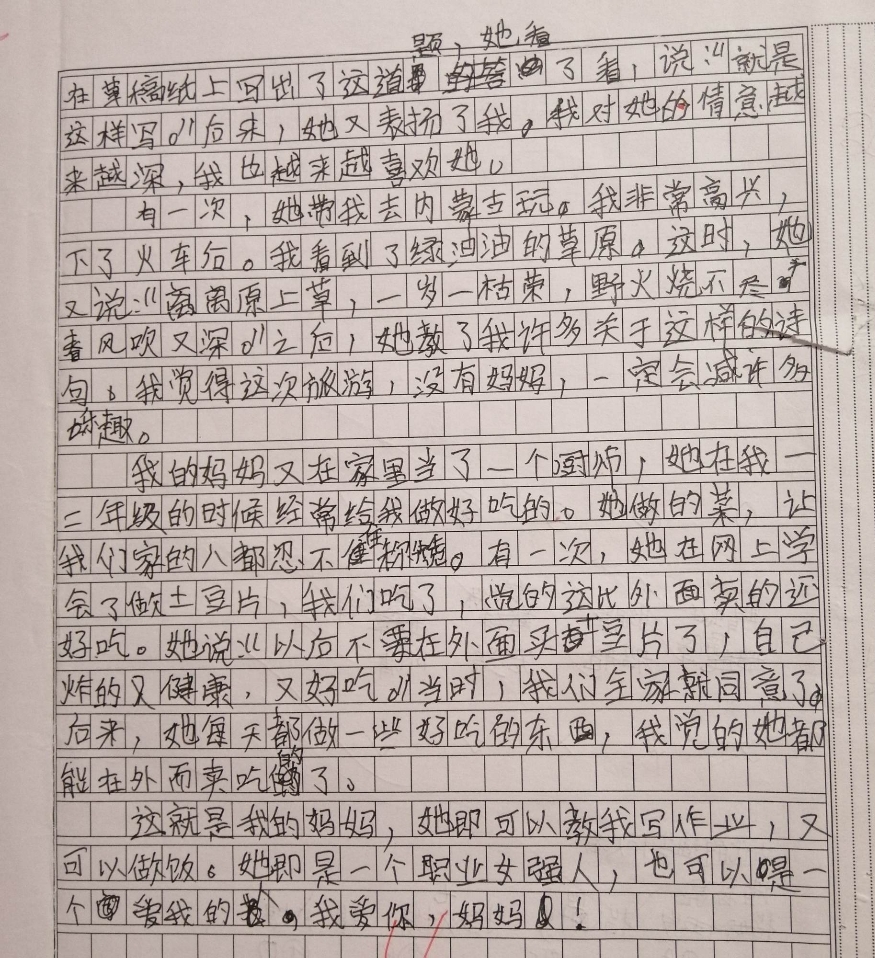 题，她看
在草稿纸上写出了这道了看，说：“就是
这样写。”后来，她又表扬了我。我对她的情意越
来越深，我也越来越喜欢她。
有一次，她带我去内蒙古玩。我非常高兴，
下了火车后。我看到了绿油油的草原。这时，她
又说：“离离原上草，一岁一枯荣，野火烧不尽
春风吹又深。”之后，她教了我许多关于这样的诗
句。我觉得这次旅游，没有妈妈，一定会减许多
乐趣。
我的妈妈又在家里当了一个厨师，她在我一
二年级的时候经常给我做好吃的。她做的菜，让
我们家的人都忍不住在称赞。有一次，她在网上学
会了做土豆片，我们吃了，觉的这比外面卖的还
好吃。她说：“以后不要在外面买土豆片了，自己
炸的又健康，又好吃。”当时，我们全家就同意了。
后来，她每天都做一些好吃的东西，我觉的她都
能在外面卖吃的了。
这就是我的妈妈，她即可以教我写作业，又
可以做饭。她即是一个职业女强人，也可以是一
个爱我的人。我爱你，妈妈！